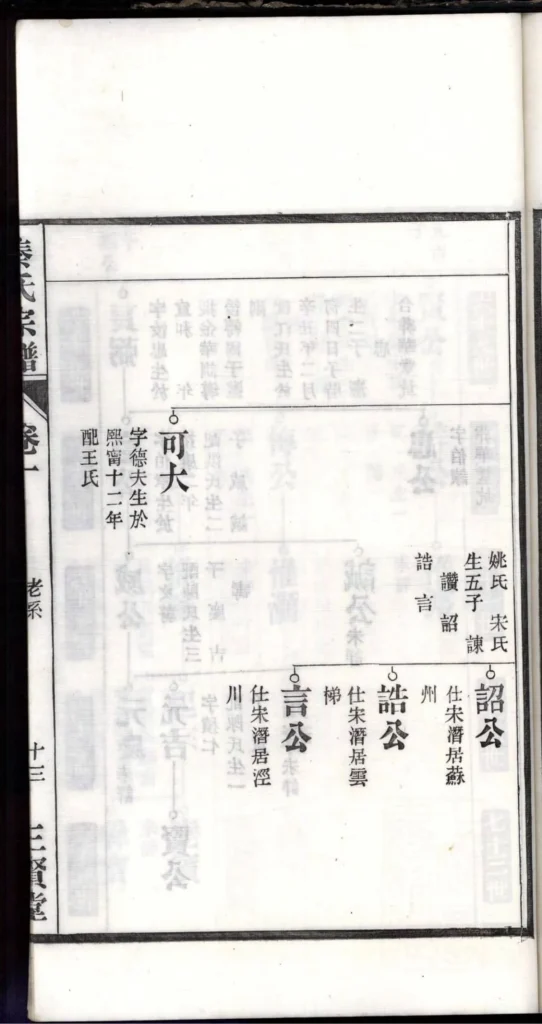 姚氏 宋氏
生五子 諫
讚 詔
誥 言
詔公
仕宋潛居蘇
州
誥公
仕宋潛居雲
梯
言公
仕宋潛居涇
川
可大
字德夫生於
熙甯十二年
配王氏
氏宗譜
卷一
老系
十三
三賢堂